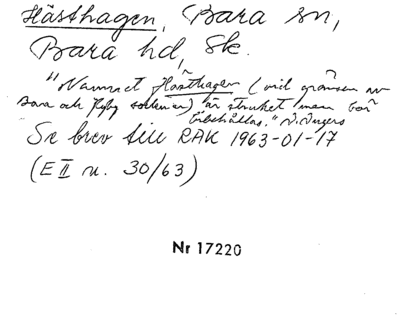 Hästhagen, Bara sn,
Bara hd, Sk.
"Namnet Hästhagen (vid gränsen av
Bara och Hyby socknar) är struket men bör
bibehållas." I. Ingers
Se brev till RAK 1963-01-17
(E II n. 30/63)
Nr 17220